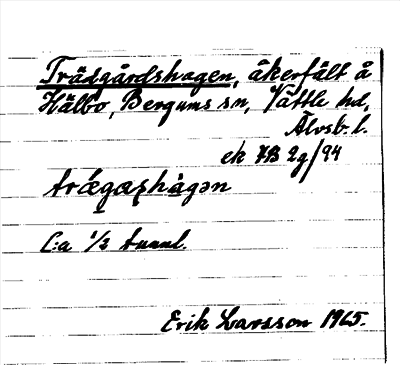 Trädgårdshagen, åkerfält å
Hälbo, Bergums sn, Vättle hd,
Älvsb. l.
ek 7B 2g/94
trǽgaʂhàgən
C:a ½ tunnl.
Erik Larsson 1965.